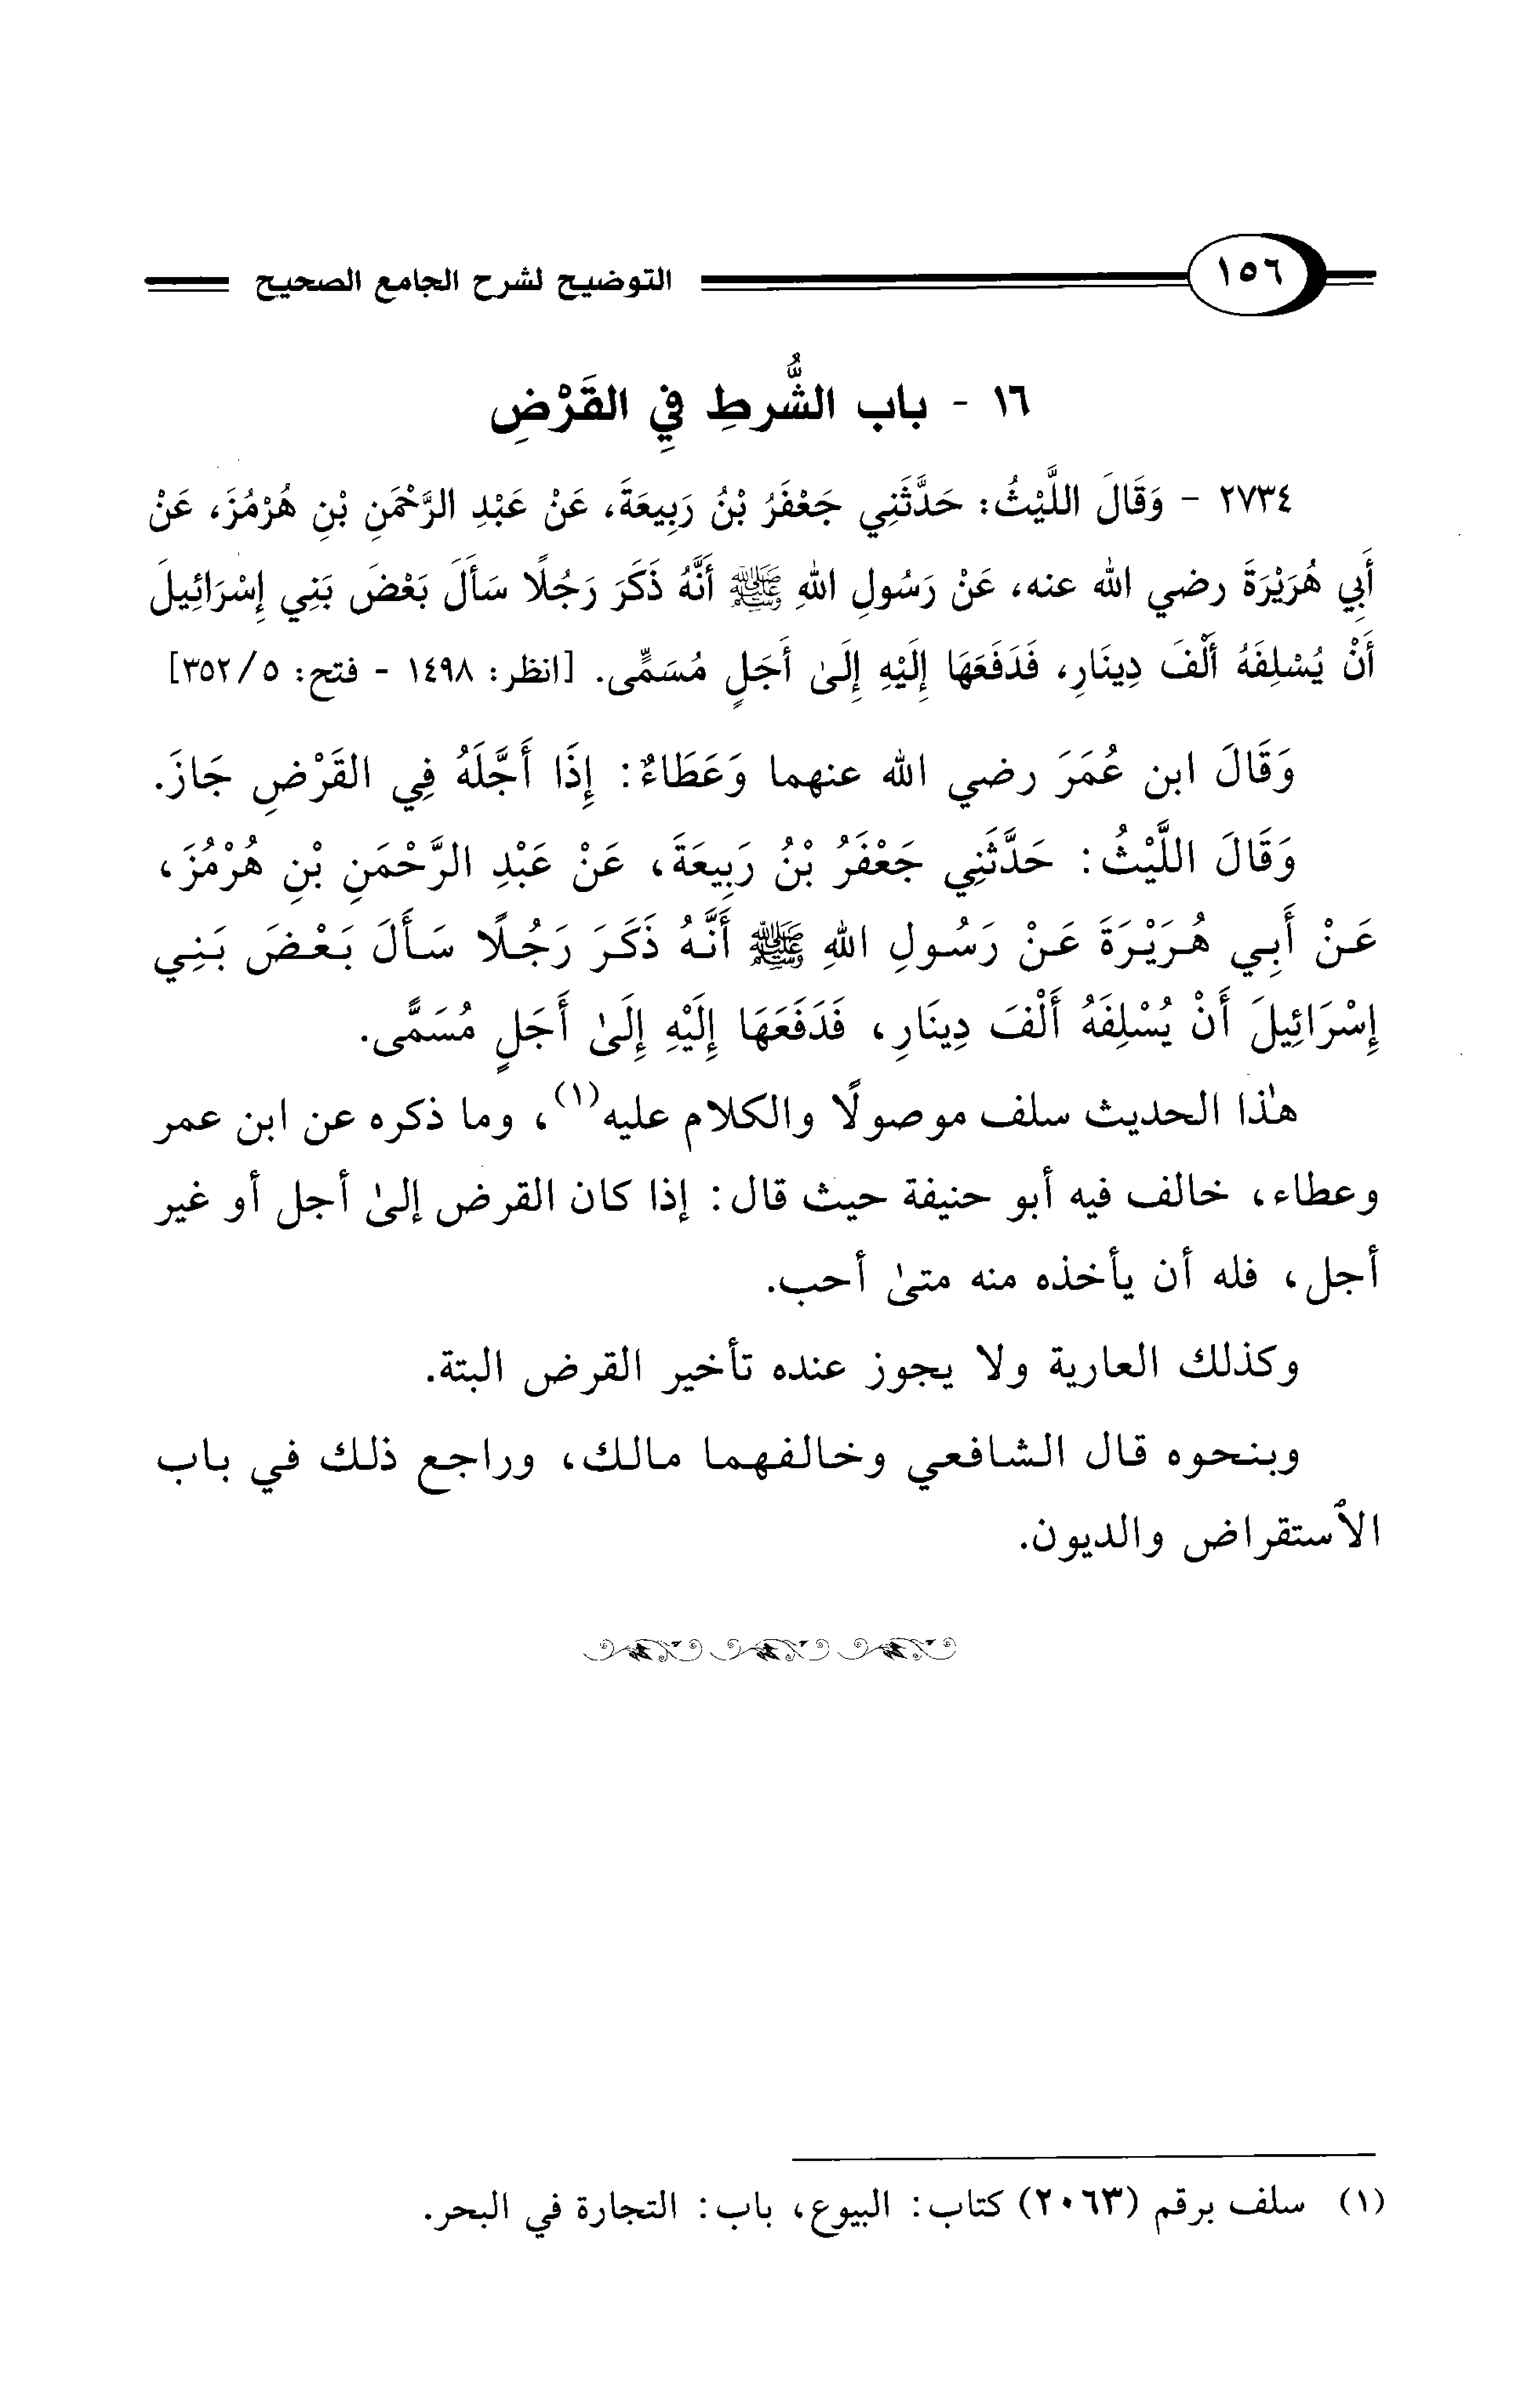 ١٥٦ التوضيح لشرح الجامع الصحيح
١٦ - باب الشُّروُطِ فِي القَرْضِ
٢٧٣٤ - وَقَالَ اللَّيْثُ: حَدَّثَنِي جَعْفَرُ بْنُ رَبِيعَةَ، عَنْ عَبْدِ الرَّحْمَنِ بْنِ هُرْمُزَ، عَنْ
أَبِي هُرَيْرَةَ رضي الله عنه، عَنْ رَسُولِ اللهِ ﷺ أَنَّهُ ذَكَرَ رَجُلًا سَأَلَ بَعْضَ بَنِي إِسْرَائِيلَ
أَنْ يُسْلِفَهُ أَلْفَ دِينَارٍ، فَدَفَعَهَا إِلَيْهِ إِلَىٰ أَجَلٍ مُسَمًّى. [انظر: ١٤٩٨ - فتح: ٥/ ٣٥٢]
وَقَالَ ابن عُمَرَ رضي الله عنهما وَعَطَاءٌ: إِذَا أَجَّلَهُ فِي القَرْضِ جَازَ.
وَقَالَ اللَّيْثُ: حَدَّثَنِي جَعْفَرُ بْنُ رَبِيعَةَ، عَنْ عَبْدِ الرَّحْمَنِ بْنِ هُرْمُزَ،
عَنْ أَبِي هُرَيْرَةَ عَنْ رَسُولِ اللهِ ﷺ أَنَّهُ ذَكَرَ رَجُلًا سَأَلَ بَعْضَ بَنِي
إِسْرَائِيلَ أَنْ يُسْلِفَهُ أَلْفَ دِينَارٍ، فَدَفَعَهَا إِلَيْهِ إِلَىٰ أَجَلٍ مُسَمًّى.
هذا الحديث سلف موصولًا والكلام عليه(١)، وما ذكره عن ابن عمر
وعطاء، خالف فيه أبو حنيفة حيث قال: إذا كان القرض إلىٰ أجل أو غير
أجل، فله أن يأخذه منه متىٰ أحب.
وكذلك العارية ولا يجوز عنده تأخير القرض البتة.
وبنحوه قال الشافعي وخالفهما مالك، وراجع ذلك في باب
الاستقراض والديون.
(١) سلف برقم (٢٠٦٣) كتاب: البيوع، باب: التجارة في البحر.